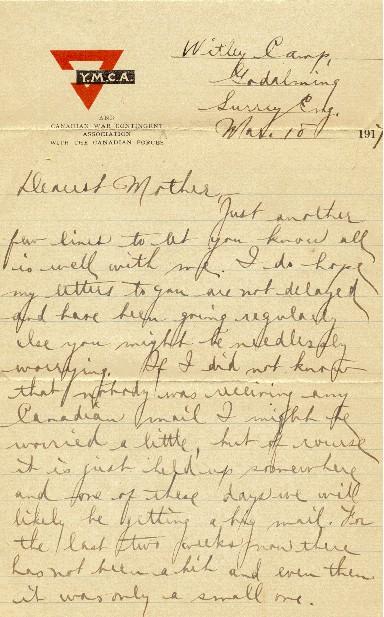 Witley Camp,
Godalming
Surrey Eng.
Mar. 10 1917
Y.M.C.A.
AND
CANADIAN WAR CONTINGENT
ASSOCIATION
WITH THE CANADIAN FORCES
Dearest Mother,
Just another
few lines to let you know all
is well with me. I do hope
my letters to you are not delayed
and have been going regularly
else you might be needlessly
worrying. If I did not know
that nobody was receiving any
Canadian mail I might be
worried a little, but of course
it is just held up somewhere
and one of these days we will
likely be getting a big mail. For
the last two weeks now there
has not been a bit and even then
it was only a small one.